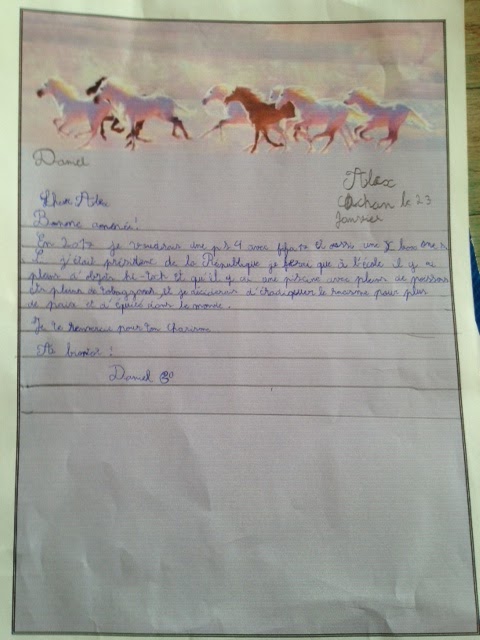 Daniel
Alex
Cachan le 23
Janvier
Cher Alex
Bonne année!
En 2017 je voudrais une ps4 avec fifa 17 et aussi une X box one
Si j'étais président de la République je ferai que à l'école il y ai
plein d'objets hi-tech et qu'il y ai une piscine avec pleins de poissons
et pleins de et je d'éradiquer le racisme pour plus
de paix et d' dans le monde.
Je te remercie pour ton
A bientôt !
Daniel